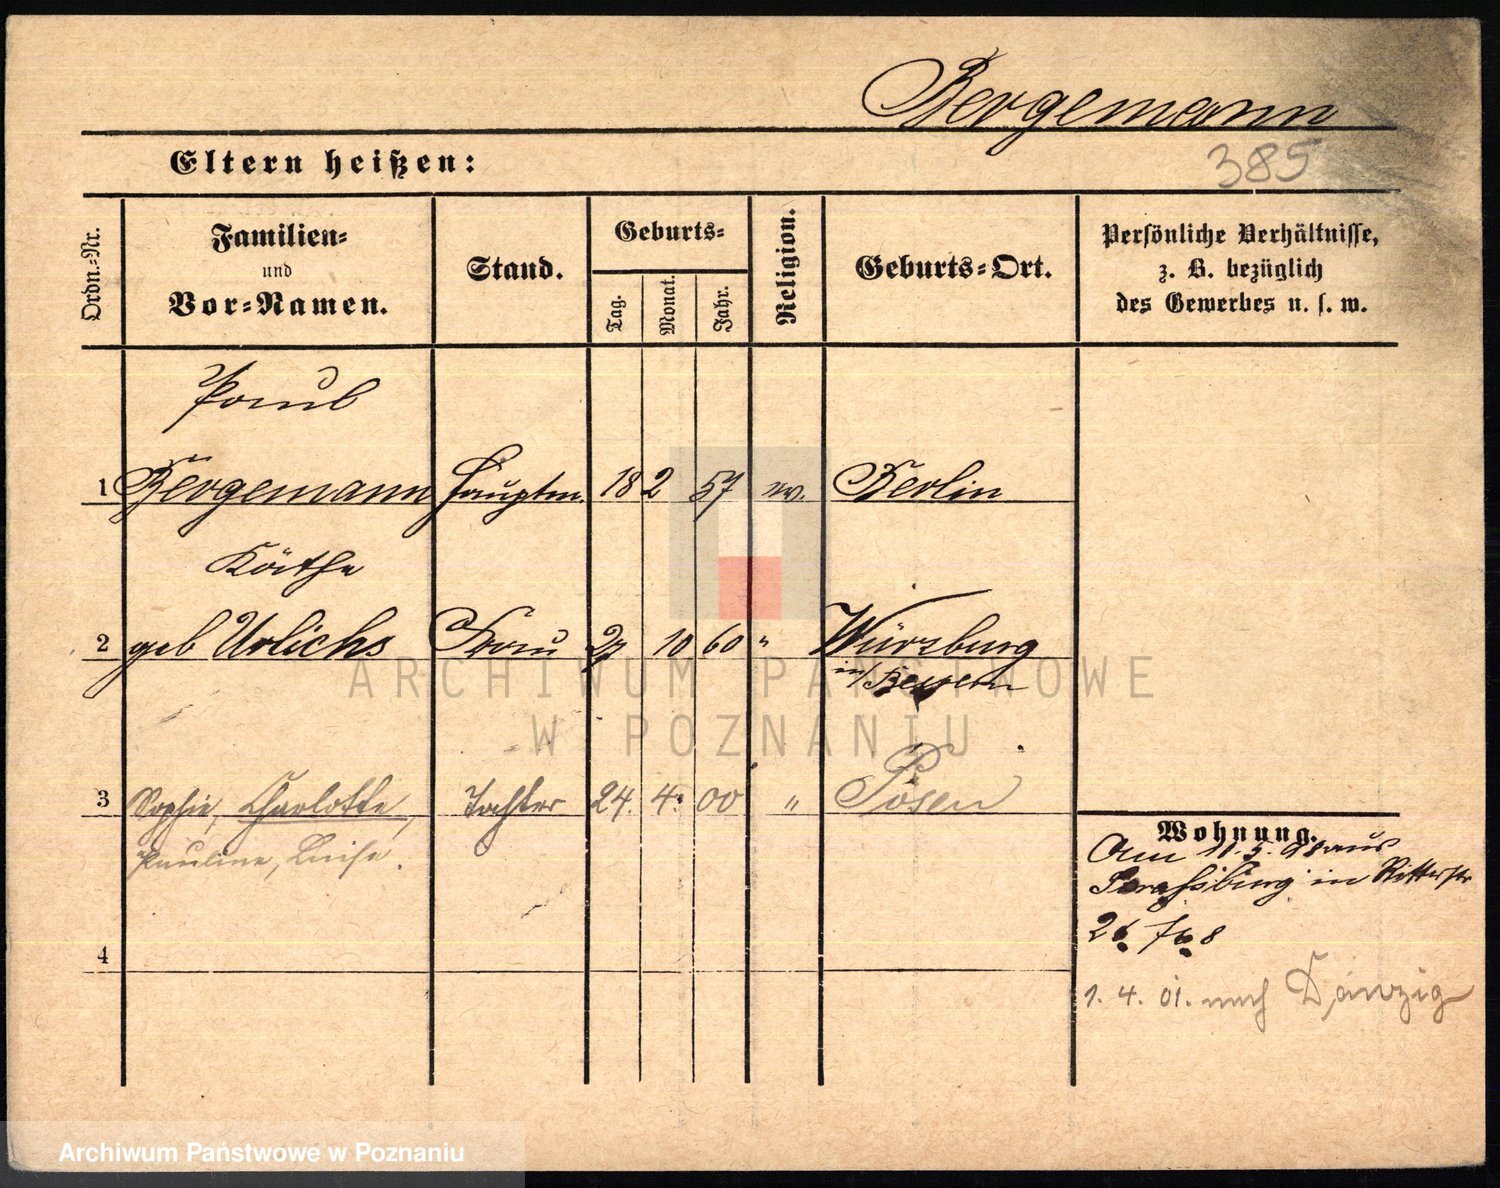 Bergemann
385
Eltern heißen:
Ordn.=Nr.
Familien=
und
Vor=Namen.
Stand.
Geburts=
Tag.
Monat.
Jahr.
Religion.
Geburts=Ort.
Persönliche Verhältnisse,
z. B. bezüglich
des Gewerbes u. s. w.
Paul
1 Bergemann Hauptm. 18 2 57 ev. Berlin
Käthe
2 geb Urlichs Frau 27 10 60 " Würzburg
in/Bayern
3 Sophie, Charlotte, Tochter 24. 4. 00 " Posen
Pauline, Luise.
4
Wohnung.
Am 11.5.98 aus
Strassburg in Ritterstr
26
1. 4. 01. nach Danzig
ARCHIWUM PAŃSTWOWE
W POZNANIU
Archiwum Państwowe w Poznaniu